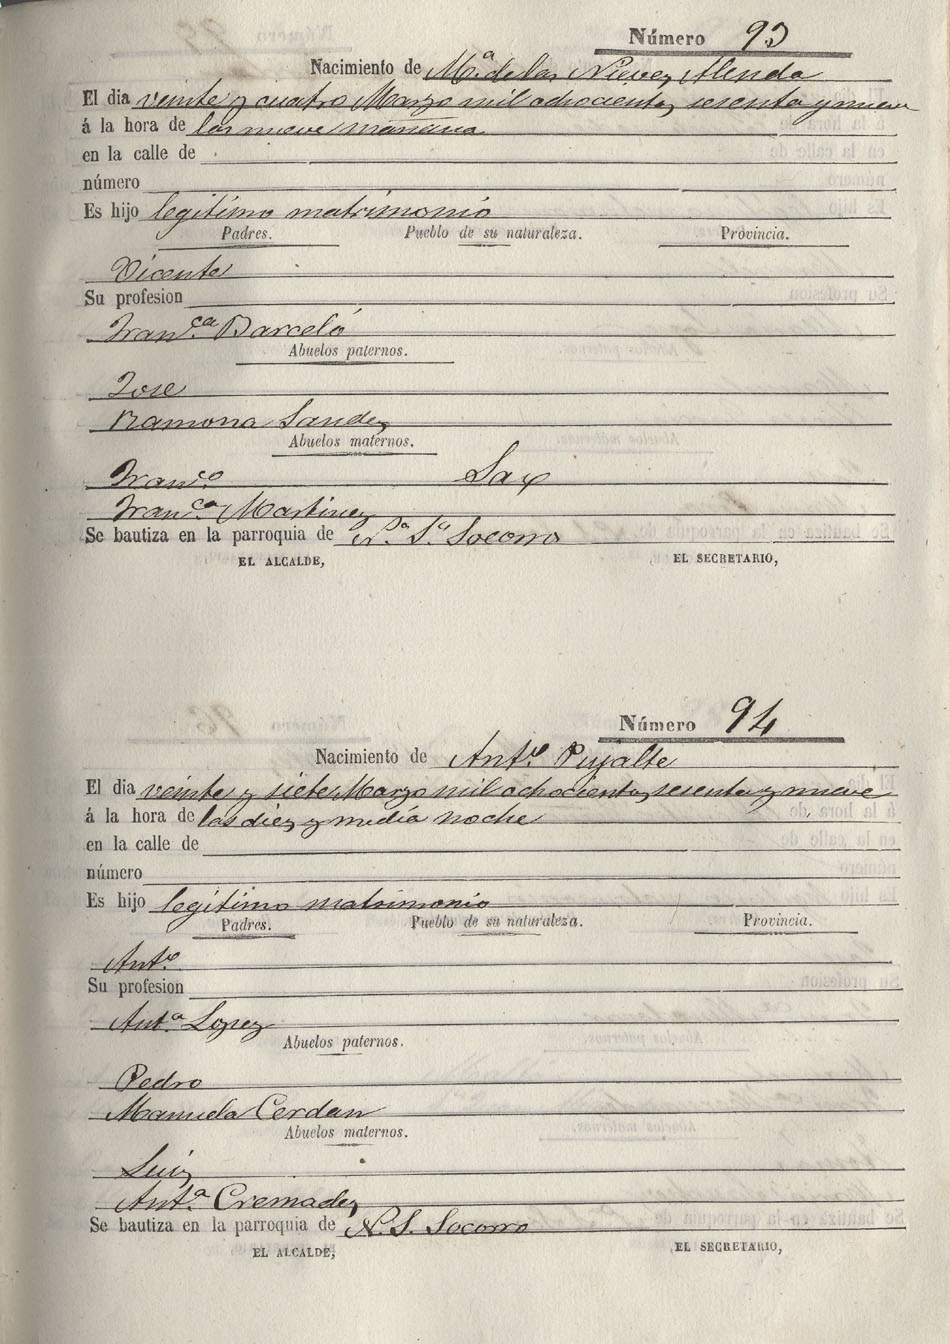 Número 93
Nacimiento de Mª de las Nieves Alenda
El dia veinte y cuatro Marzo mil ochocientos sesenta y nueve
á la hora de las nueve mañana
en la calle de
número
Es hijo legitimo matrimonio
Padres. Pueblo de su naturaleza. Provincia.
Vicente
Su profesion
Franᶜᵃ Barceló
Abuelos paternos.
Jose
Ramona
Abuelos maternos.
Franᶜᵒ Sax
Franᶜᵃ Martinez
Se bautiza en la parroquia de Nª Sª Socorro
EL ALCALDE, EL SECRETARIO,
Número 94
Nacimiento de Antº Pujalte
El dia veinte y siete Marzo mil ochocientos sesenta y nueve
á la hora de las diez y media noche
en la calle de
número
Es hijo legitimo matrimonio
Padres. Pueblo de su naturaleza. Provincia.
Antº
Su profesion
Antª Lopez
Abuelos paternos.
Pedro
Manuela Cerdan
Abuelos maternos.
Luis
Antª Cremades
Se bautiza en la parroquia de N. S. Socorro
EL ALCALDE, EL SECRETARIO,